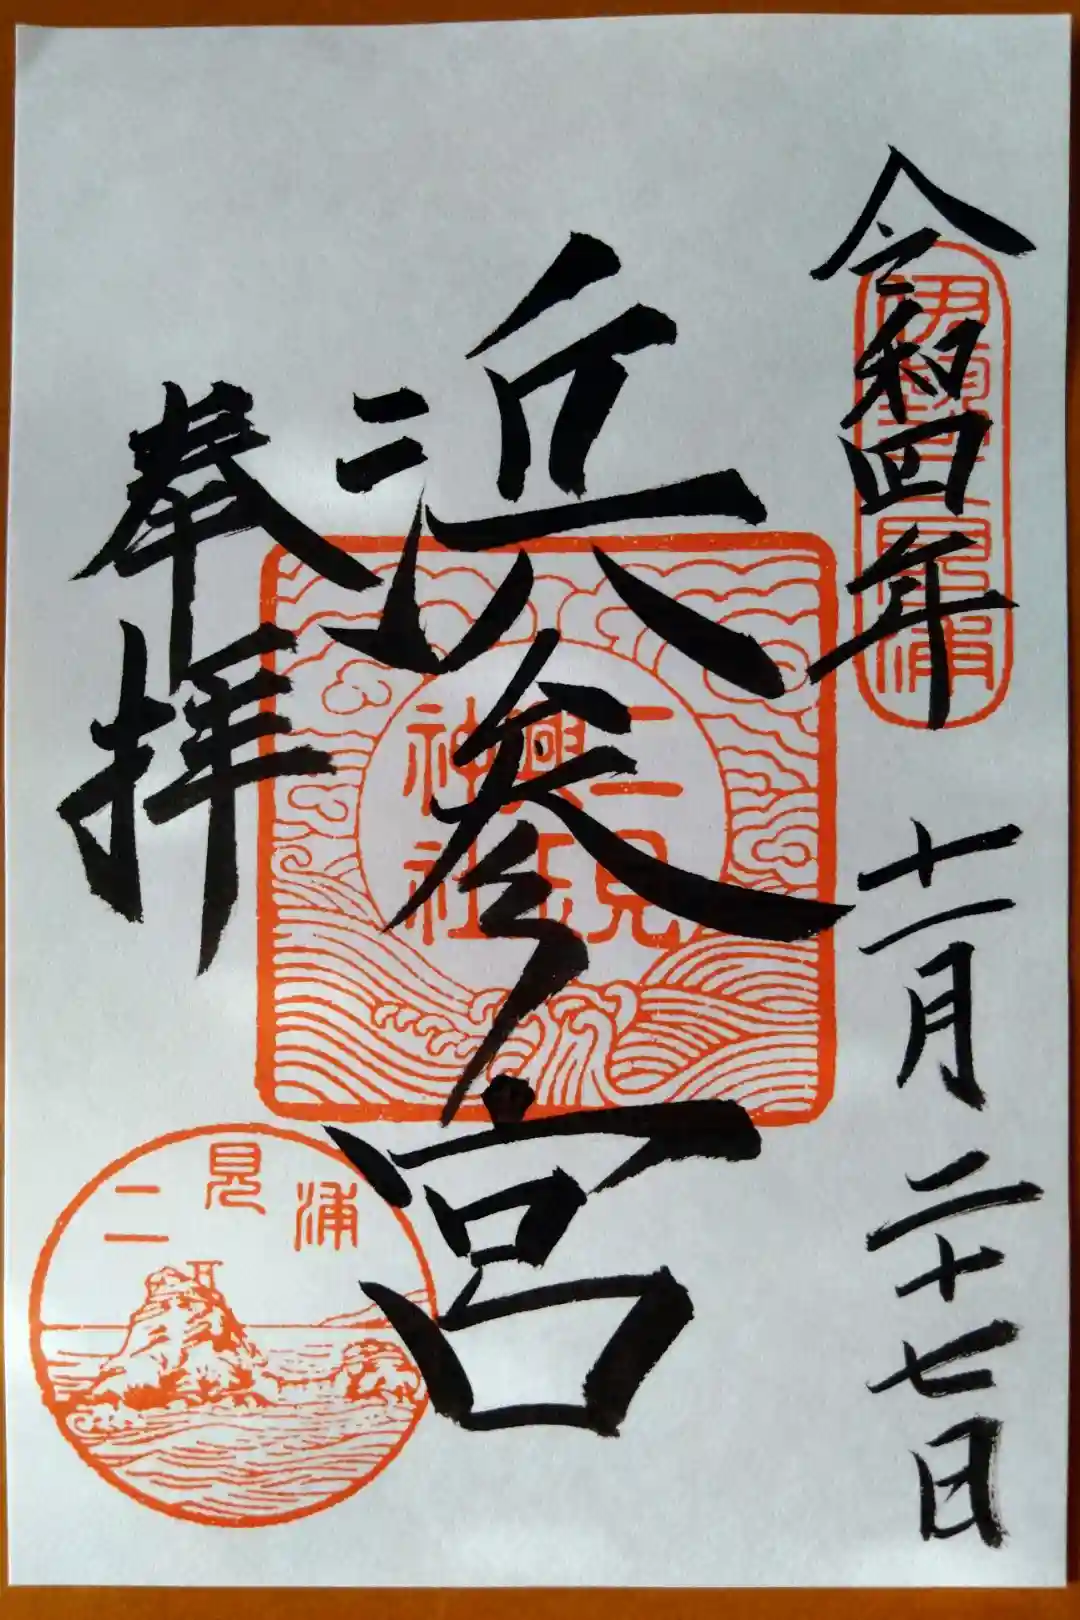 令和四年 十一月 二十七日
伊勢二見浦
浜参宮
二見
興玉
神社
奉拝
二見浦